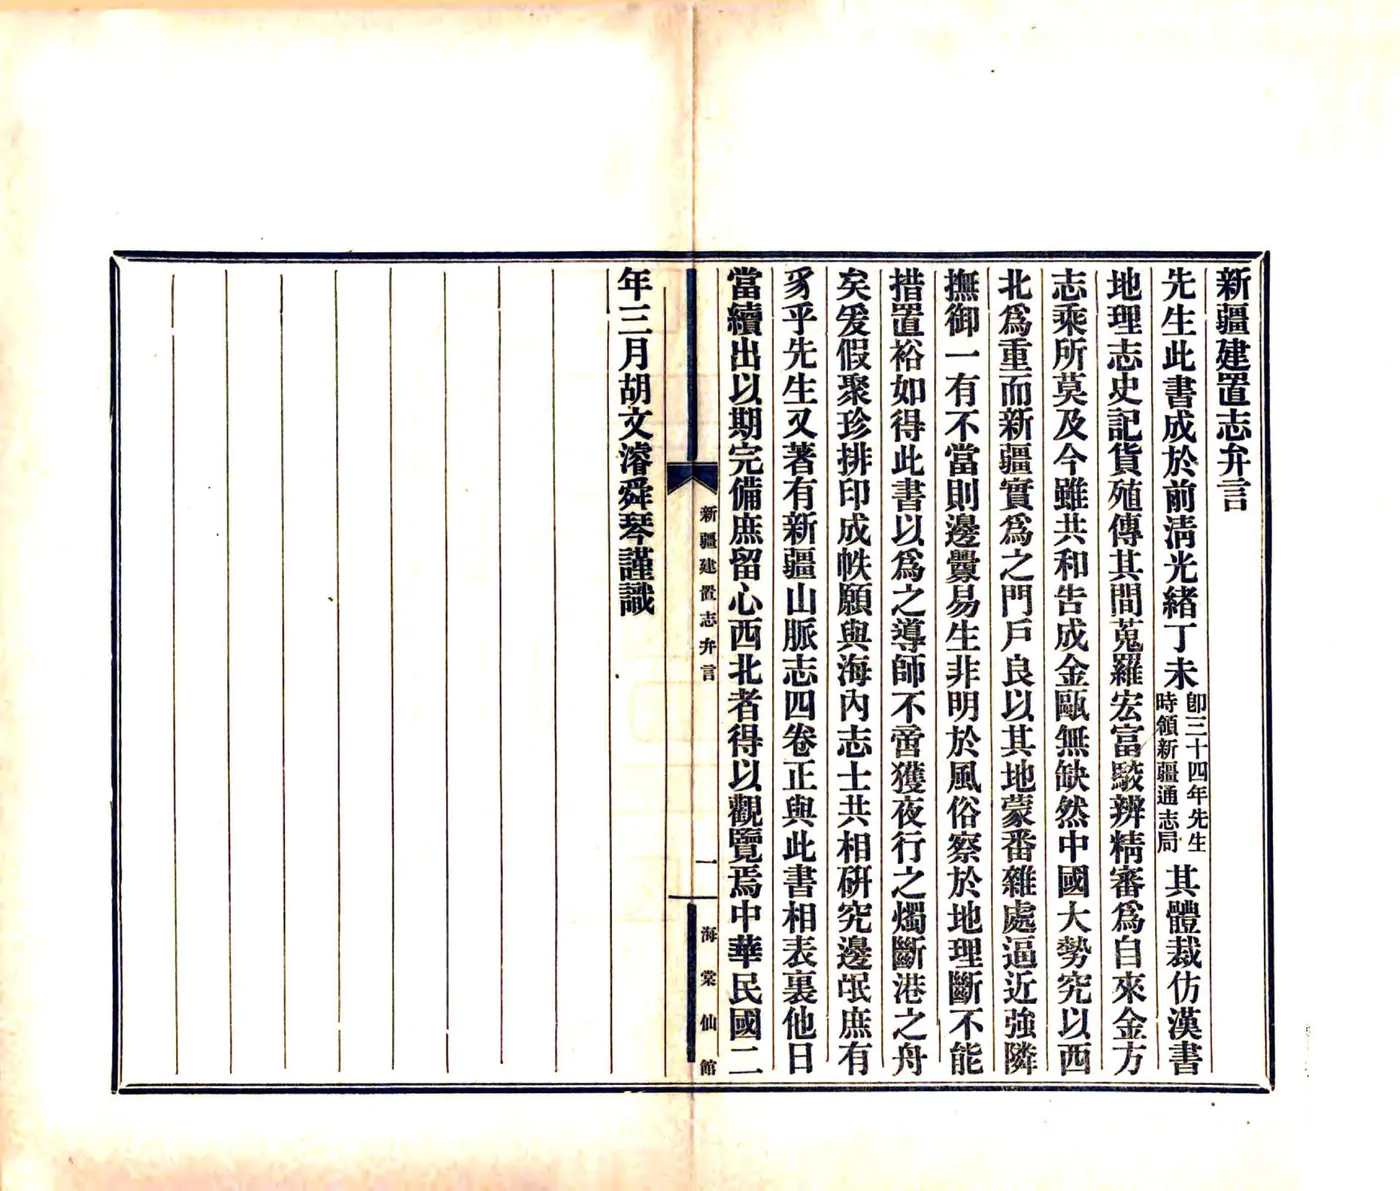 新疆建置志弁言
先生此書成於前淸光緒丁未卽三十四年先生時領新疆通志局其體裁仿漢書
地理志史記貨殖傳其間蒐羅宏富駮辨精審爲自來金方
志乘所莫及今雖共和告成金甌無缺然中國大勢究以西
北爲重而新疆實爲之門戶良以其地蒙番雜處逼近強隣
撫御一有不當則邊釁易生非明於風俗察於地理斷不能
措置裕如得此書以爲之導師不啻獲夜行之燭斷港之舟
矣爰假聚珍排印成帙願與海內志士共相硏究邊氓庶有
豸乎先生又著有新疆山脈志四卷正與此書相表裏他日
當續出以期完備庶留心西北者得以觀覽焉中華民國二
年三月胡文濬舜琴謹識
新疆建置志弁言
一
海棠仙館